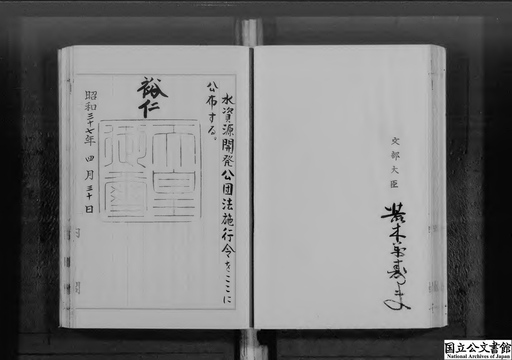 文部大臣
荒木萬壽夫
水資源開発公団法施行令をここに
公布する。
裕仁
天皇
御璽
昭和三十七年 四月三十日
国立公文書館
National Archives of Japan